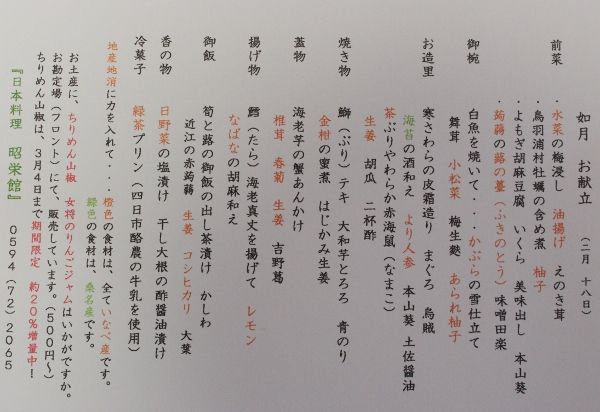 如月　お献立　（二月　十八日）
前菜　・水菜の梅浸し　油揚げ　えのき茸
・鳥羽浦村牡蠣の含め煮　柚子
・よもぎ胡麻豆腐　いくら　美味出し　本山葵
・蒟蒻の蕗の薹（ふきのとう）味噌田楽
御椀　白魚を焼いて・・かぶらの雪仕立て
舞茸　小松菜　梅生麩　あられ柚子
お造里　寒さわらの皮霜造り　まぐろ　烏賊
海苔の酒和え　より人参　本山葵　土佐醤油
茶ぶりやわらか赤海鼠（なまこ）
生姜　胡瓜　二杯酢
焼き物　鰤（ぶり）テキ　大和芋とろろ　青のり
金柑の蜜煮　はじかみ生姜
蓋物　海老芋の蟹あんかけ
椎茸　春菊　生姜　吉野葛
揚げ物　鱈（たら）海老真丈を揚げて　レモン
なばなの胡麻和え
御飯　筍と蕗の御飯の出し茶漬け　かしわ
近江の赤蒟蒻　生姜　コシヒカリ　大葉
香の物　日野菜の塩漬け　干し大根の酢醤油漬け
冷菓子　緑茶プリン（四日市酪農の牛乳を使用）
地産地消に力を入れて・・橙色の食材は、全ていなべ産です。
緑色の食材は、桑名産です。
お土産に、ちりめん山椒　女将のりんごジャムはいかがですか。
お勘定場（フロント）にて、販売しています。（500円～）
ちりめん山椒は、3月4日まで期間限定　約20%増量中！
『日本料理　昭栄館』　0594（72）2065